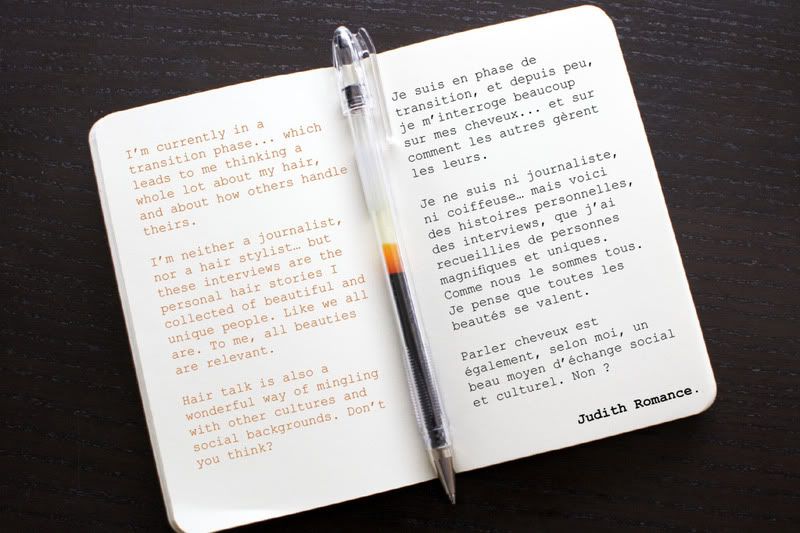 I'm currently in a
transition phase... which
leads to me thinking a
whole lot about my hair,
and about how others handle
theirs.
I'm neither a journalist,
nor a hair stylist… but
these interviews are the
personal hair stories I
collected of beautiful and
unique people. Like we all
are. To me, all beauties
are relevant.
Hair talk is also a
wonderful way of mingling
with other cultures and
social backgrounds. Don't
you think?
Je suis en phase de
transition, et depuis peu,
je m'interroge beaucoup
sur mes cheveux... et sur
comment les autres gèrent
les leurs.
Je ne suis ni journaliste,
ni coiffeuse… mais voici
des histoires personnelles,
des interviews, que j'ai
recueillies de personnes
magnifiques et uniques.
Comme nous le sommes tous.
Je pense que toutes les
beautés se valent.
Parler cheveux est
également, selon moi, un
beau moyen d'échange social
et culturel. Non ?
Judith Romance.